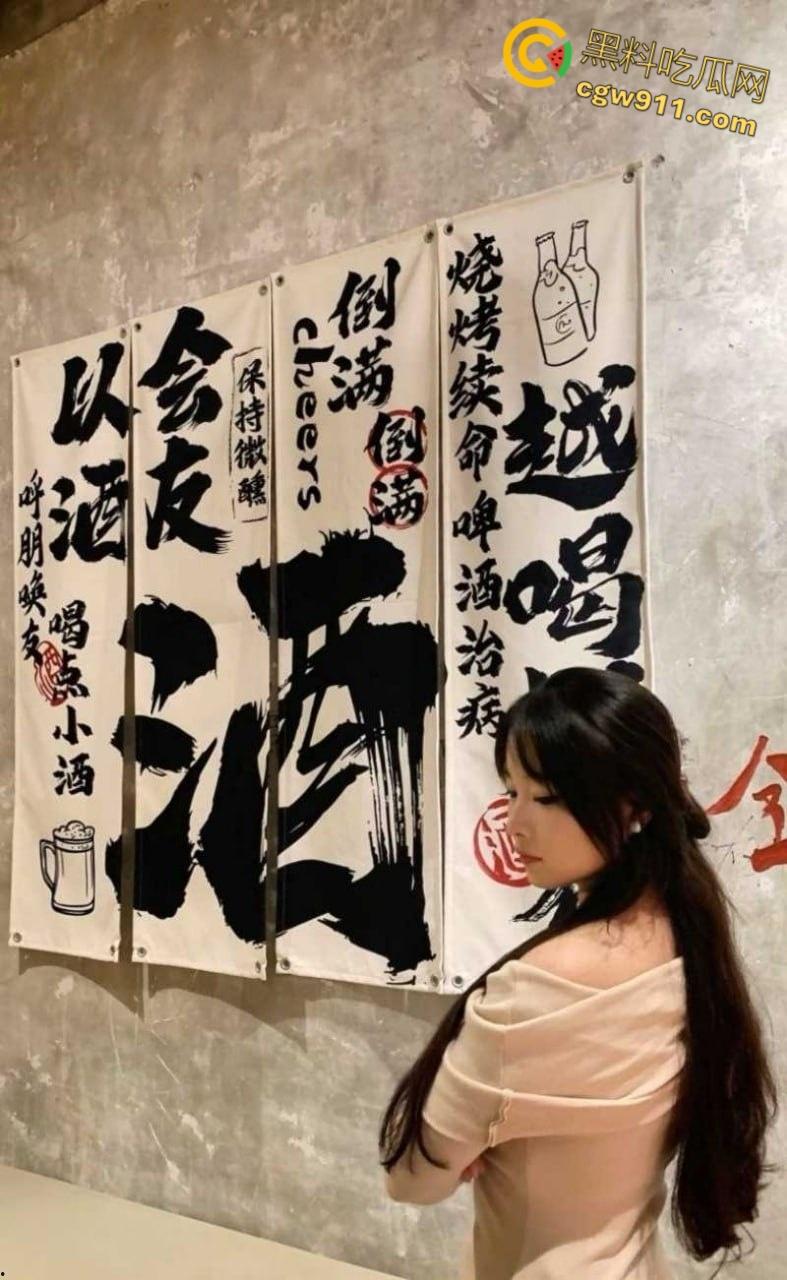 黑料吃瓜网
cgw911.com
以酒
会友
呼朋唤友
喝点小酒
保持微醺
倒满
cheers
倒满
酒
烧烤续命啤酒治病
越喝
酒